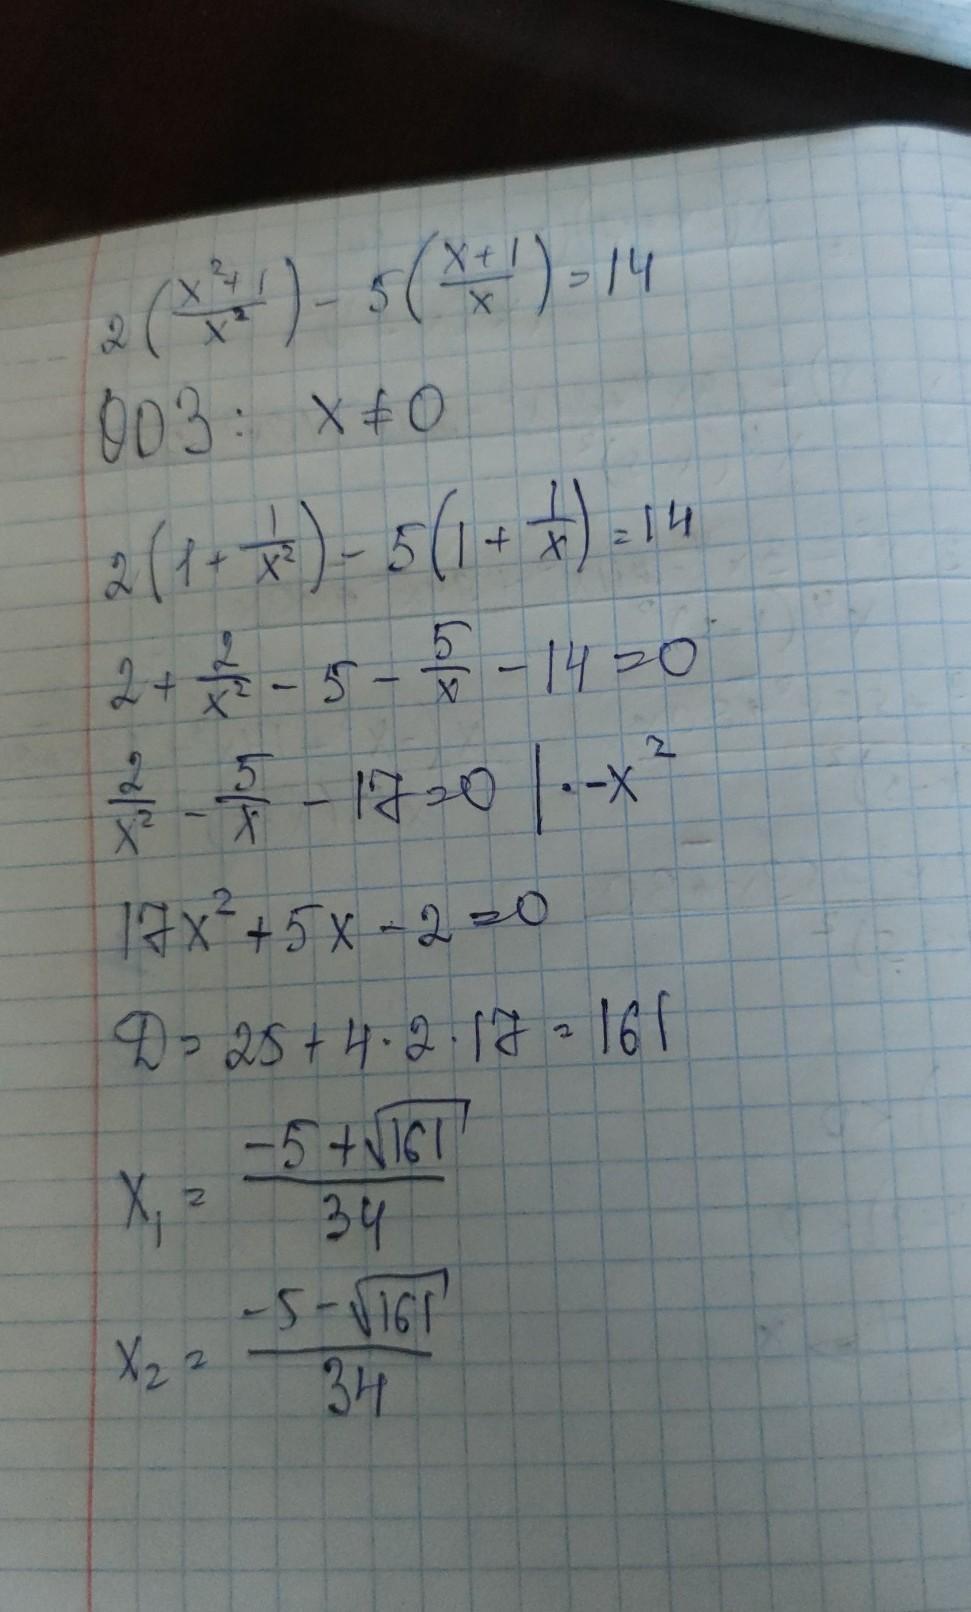 2(x²+1/x²) - 5(x+1/x) = 14
ОДЗ: x ≠ 0
2(1 + 1/x²) - 5(1 + 1/x) = 14
2 + 2/x² - 5 - 5/x - 14 = 0
2/x² - 5/x - 17 = 0 | · -x²
17x² + 5x - 2 = 0
D = 25 + 4 · 2 · 17 = 161
x₁ = -5 + √161/34
x₂ = -5 - √161/34